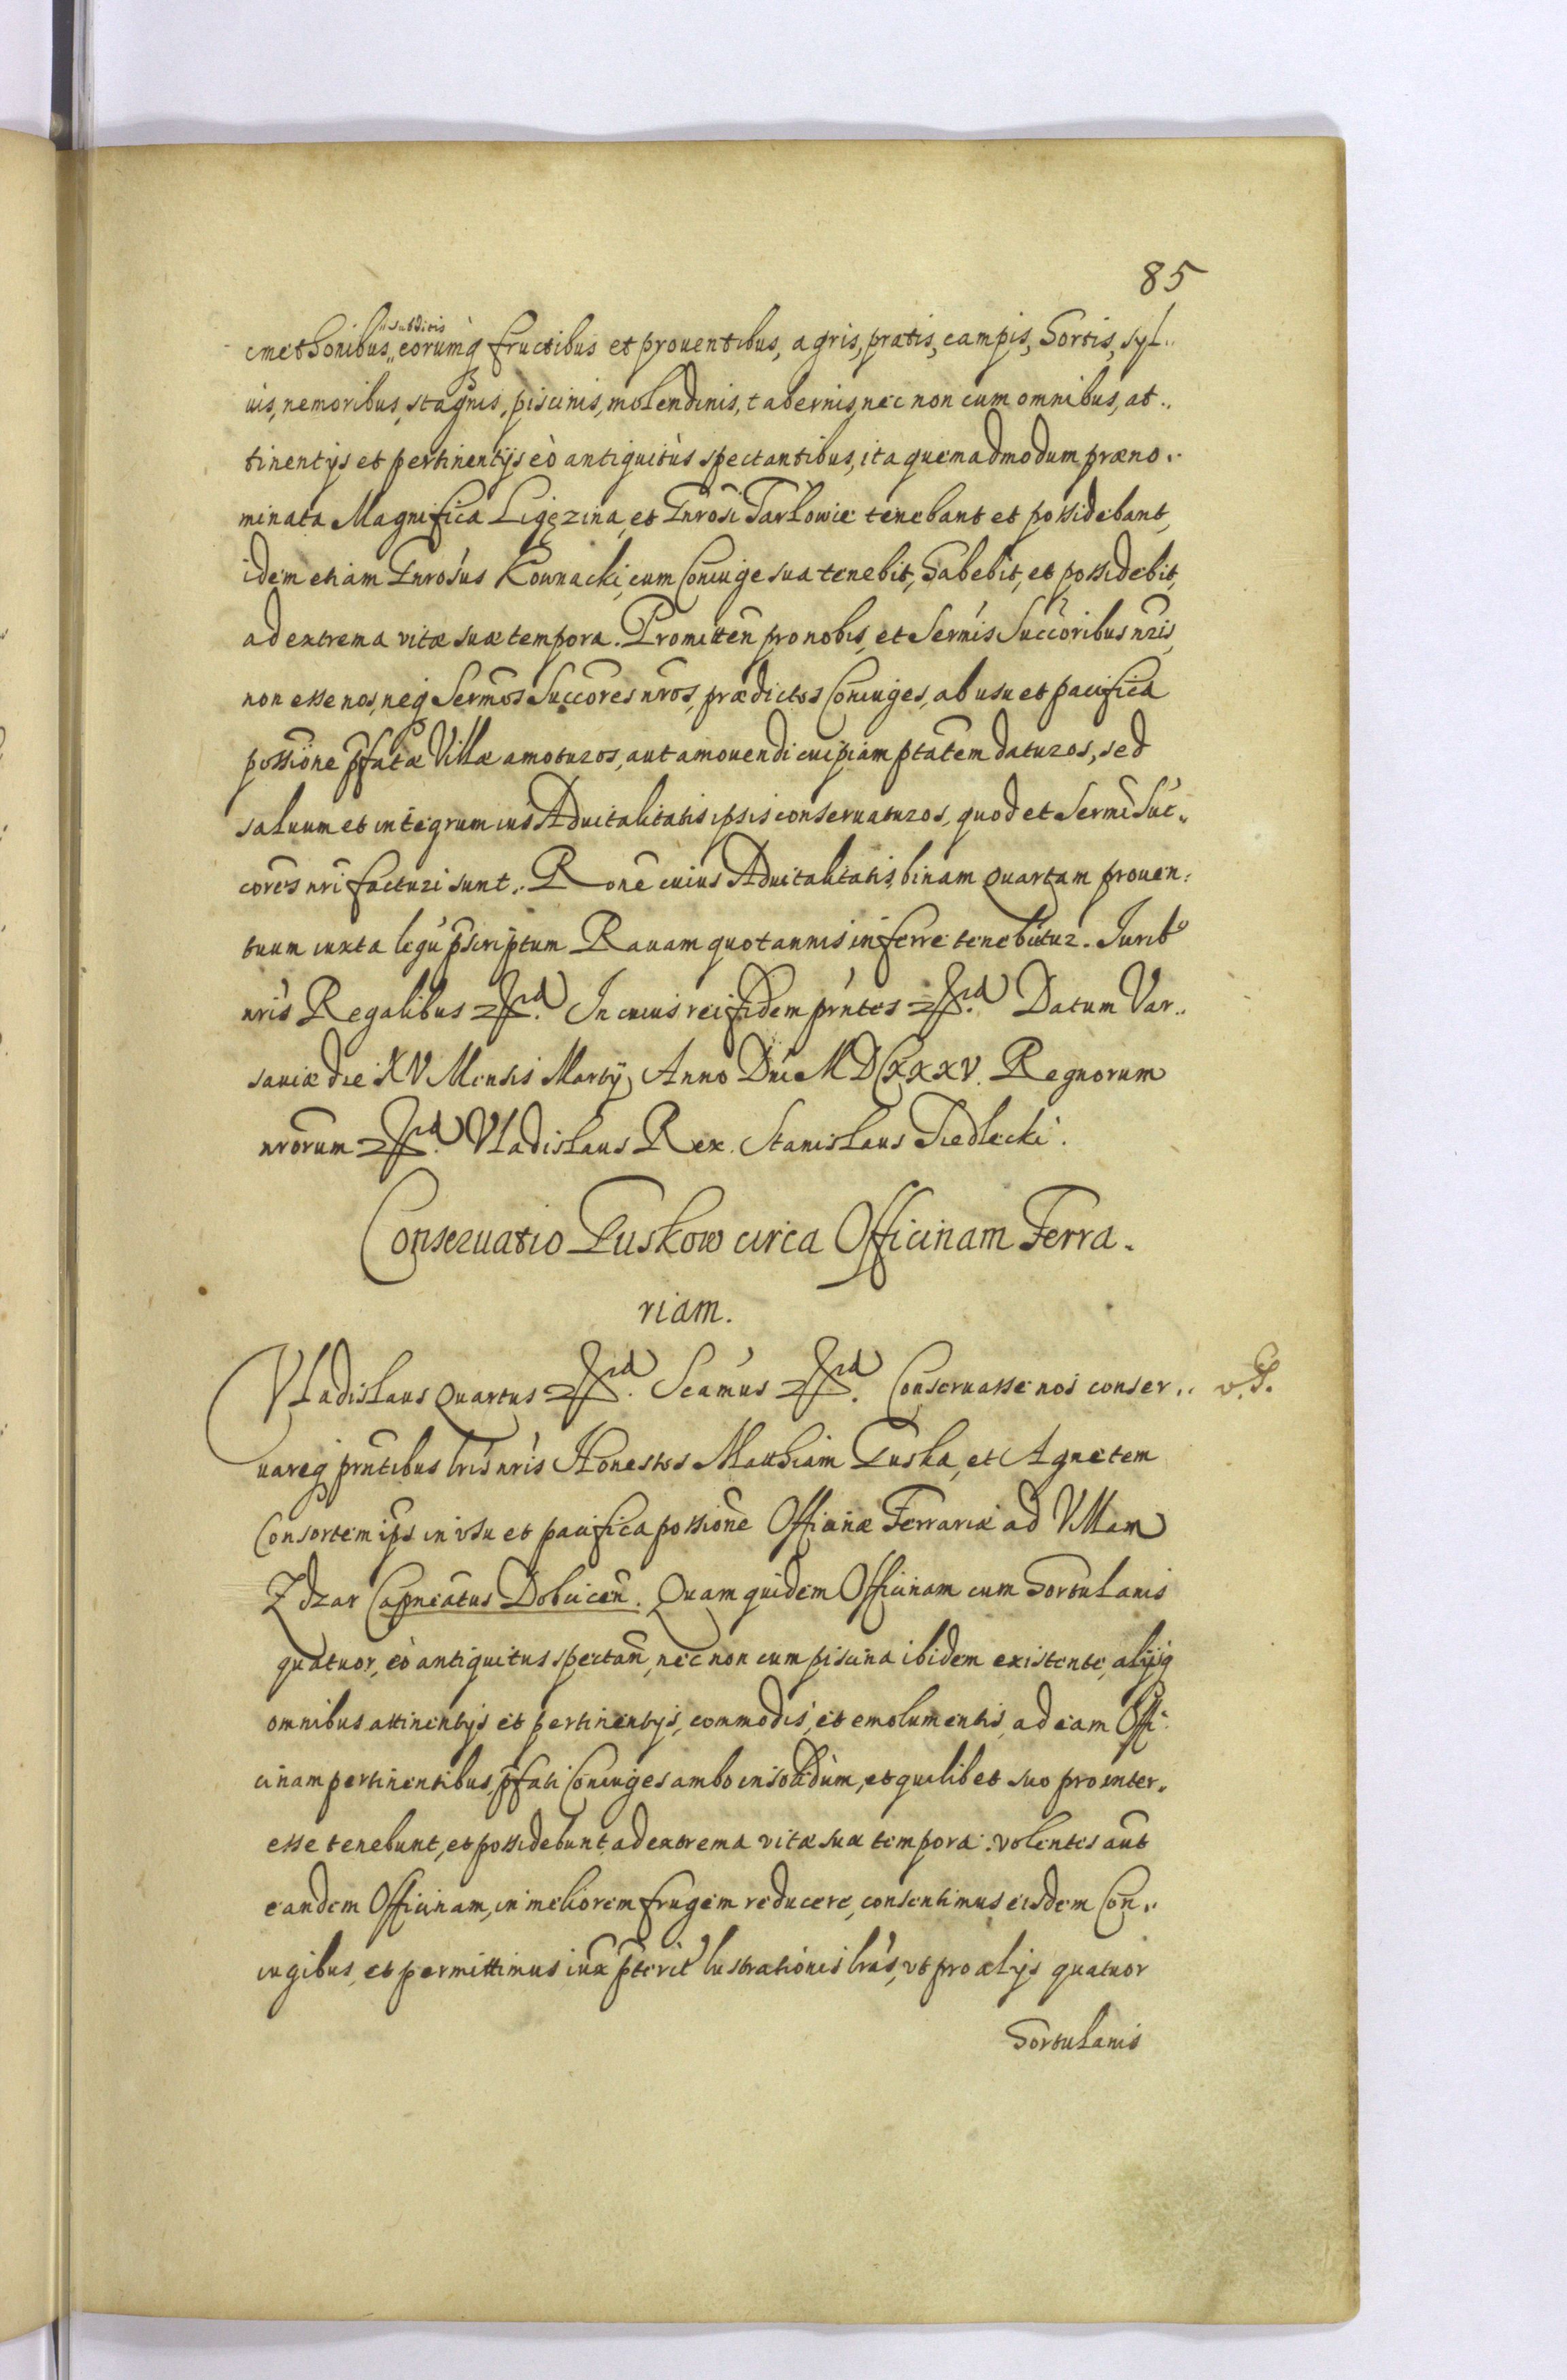 85
cmethonibus, subditis eorumq fructibus et prouentibus, agris, pratis, campis, hortis, syl..
uis, nemoribus, stagnis, piscinis, molendinis, tabernis, nec non cum omnibus, at..
tinentijs et pertinentijs eò antiquitùs spectantibus, ita quemadmodum præno..
minata Magnifica Ligęzina, et Gnrosi Tarłowie tenebant et possidebant,
idem etiam Gnrosus Kownacki, cum Coniuge sua tenebit, habebit, et possidebit,
ad extrema vitæ suæ tempora. Promitten pro nobis, et Sermis Succoribus nris,
non esse nos, neq Sermos Succores nros, prædictos Coniuges, ab usu et pacifica
possione pfatæ Villæ amoturos, aut amouendi cuipiam ptatem daturos, sed
saluum et integrum ius Aduitalitatis ipsis conseruaturos, quod et Sermi Suc..
cores nri facturi sunt. Rone cuius Aduitalitatis, binam quartam prouen:
tuum iuxta legu pscriptum Rauam quotannis inferre tenebūtur. Jurib9
nris Regalibus etc. In cuius rei fidem prntes etc. Datum Var..
sauiæ die XV Mensis Martij Anno Dni MDCXXXV. Regnorum
nrorum etc. Vladislaus Rex. Stanislaus Siedlecki.
Conseruatio Guskow circa Officinam Ferra.
riam.
Vladislaus Quartus etc. Scamus etc. Conseruasse nos conser.. v. S.
uareq prntibus lris nris Honestos Matthiam Guska, et Agnetem
Consortem ips in vsu et pacifica possione Officinæ Ferrariæ ad Villam
Zdzar Capneatus Dobcicen. Quam quidem Officinam cum hortulanis
quatuor, eò antiquitus spectan, nec non cum piscina ibidem existente, alijsq
omnibus attinentijs et pertinentijs, commodis, et emolumentis, ad eam Offi:
cinam pertinentibus, pfati Coniuges ambo insolidùm, et quilibet suo pro inter..
esse tenebunt, et possidebunt, ad extrema vitæ suæ tempora. volentes aut
eandem Officinam, in meliorem frugem reducere, consentimus eisdem Con..
iugibus, et permittimus iuxa pterit lustrationis lras, vt pro alijs quatuor
hortulanis